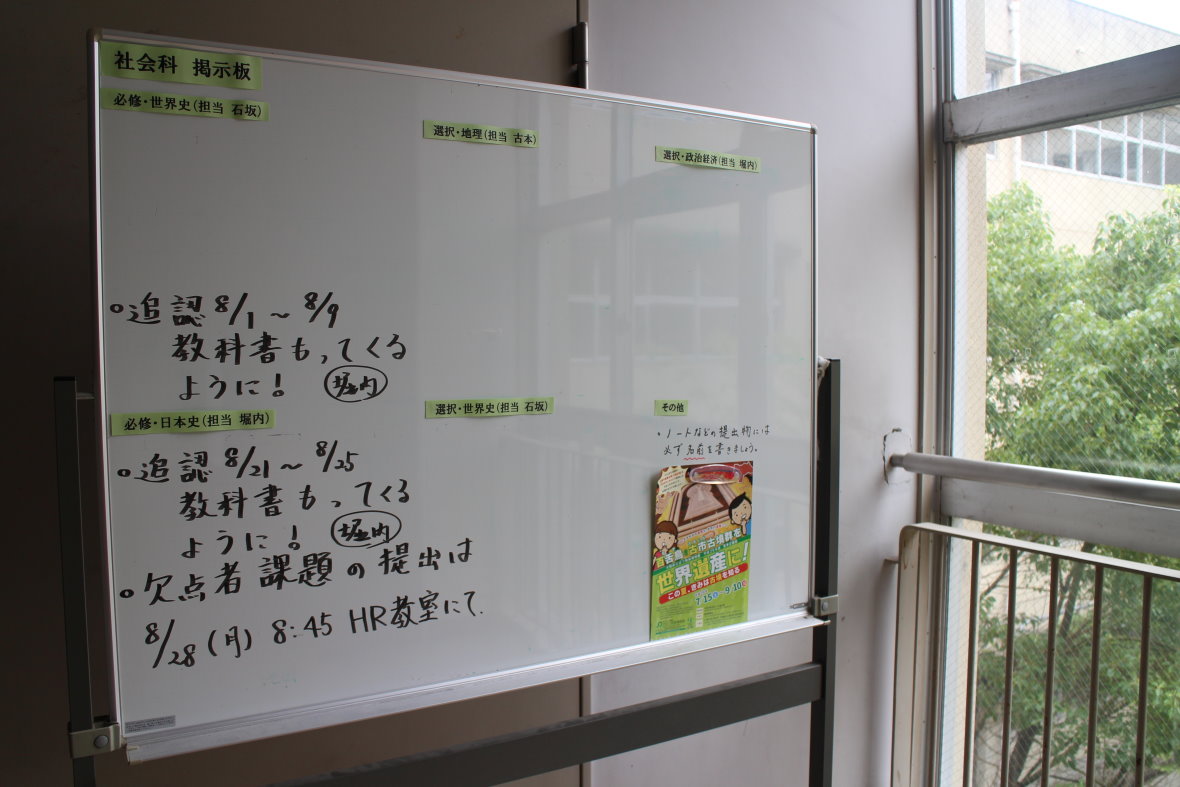 社会科 掲示板
必修・世界史(担当 石坂)
選択・地理(担当 古本)
選択・政治経済(担当 堀内)
○追認 8/1 ~ 8/9
教科書もってくる
ように! 堀内
必修・日本史(担当 堀内)
○追認 8/21 ~ 8/25
教科書もってくる
ように! 堀内
○欠点者課題の提出は
8/28 (月) 8:45 HR教室にて.
選択・世界史(担当 石坂)
その他
・ノートなどの提出物には
必ず名前を書きましょう。
百舌鳥・古市古墳群を
世界遺産に!
この夏、きみは古墳を知る
7/15 9/10